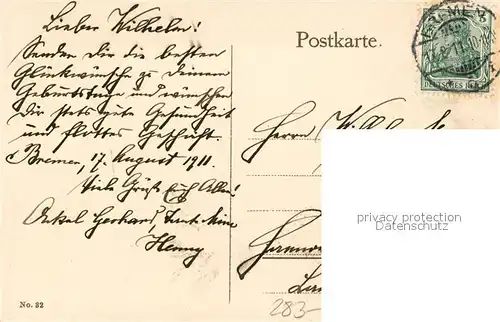 Lieber Wilhelm!
Senden Dir die besten
Glückwünsche zu Deinem
Geburtstage und wünschen
Dir stets gute Gesundheit
und flottes Geschäft.
Bremen, 17. August 1911.
Viele Grüße Euch Allen!
Onkel Gerhard, Tante Mine
Henny
No. 32
Postkarte.
BREMEN
DEUTSCHES REICH
Herrn
privacy protection
Datenschutz
283-